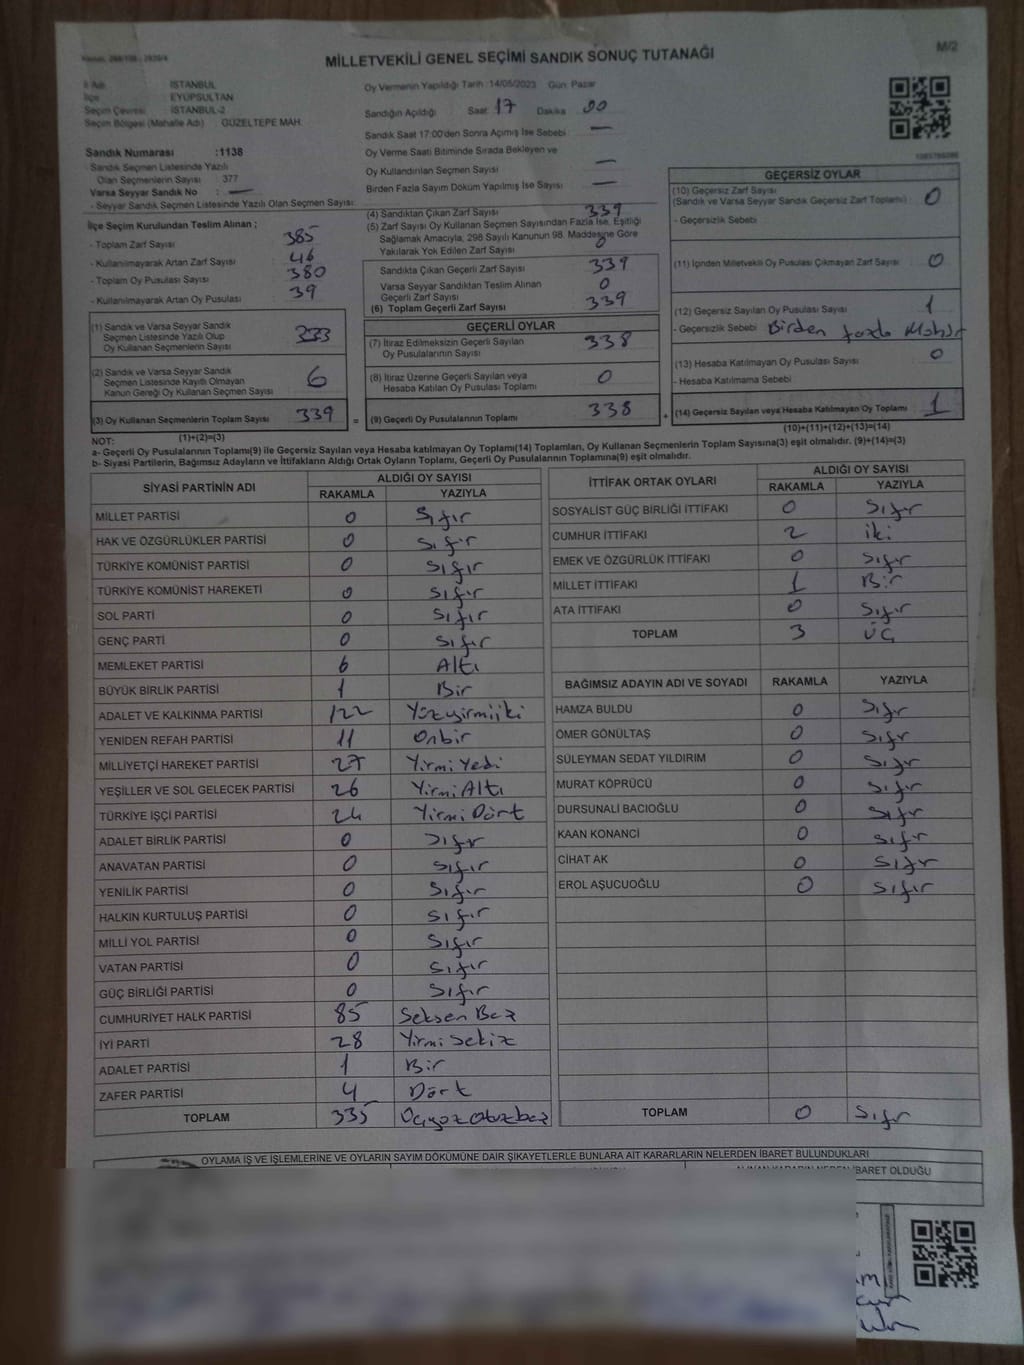 MİLLETVEKİLİ GENEL SEÇİMİ SANDIK SONUÇ TUTANAĞI
M/2
İl Adı : İSTANBUL
İlçe : EYÜPSULTAN
Seçim Çevresi : İSTANBUL-2
Seçim Bölgesi (Mahalle Adı) : GÜZELTEPE MAH.
Sandık Numarası :1138
- Sandık Seçmen Listesinde Yazılı
Olan Seçmenlerin Sayısı : 377
Varsa Seyyar Sandık No : —
- Seyyar Sandık Seçmen Listesinde Yazılı Olan Seçmen Sayısı:
Oy Vermenin Yapıldığı Tarih :14/05/2023 Gün: Pazar
Sandığın Açıldığı Saat: 17 Dakika 00
Sandık Saat 17:00'den Sonra Açılmış İse Sebebi —
Oy Verme Saati Bitiminde Sırada Bekleyen ve
Oy Kullandırılan Seçmen Sayısı —
Birden Fazla Sayım Döküm Yapılmış İse Sayısı —
İlçe Seçim Kurulundan Teslim Alınan ;
- Toplam Zarf Sayısı 385
- Kullanılmayarak Artan Zarf Sayısı 46
- Toplam Oy Pusulası 380
- Kullanılmayarak Artan Oy Pusulası 39
(1) Sandık ve Varsa Seyyar Sandık
Seçmen Listesinde Yazılı Olup
Oy Kullanan Seçmenlerin Sayısı 333
(2) Sandık ve Varsa Seyyar Sandık
Seçmen Listesinde Kayıtlı Olmayan
Kanun Gereği Oy Kullanan Seçmen Sayısı 6
(3) Oy Kullanan Seçmenlerin Toplam Sayısı 339
(1)+(2)=(3)
(4) Sandıktan Çıkan Zarf Sayısı 339
(5) Zarf Sayısı Oy Kullanan Seçmen Sayısından Fazla İse, Eşitliği
Sağlamak Amacıyla, 298 Sayılı Kanunun 98. Maddesine Göre
Yakılarak Yok Edilen Zarf Sayısı 0
Sandıkta Çıkan Geçerli Zarf Sayısı 339
Varsa Seyyar Sandıktan Teslim Alınan
Geçerli Zarf Sayısı 0
(6) Toplam Geçerli Zarf Sayısı 339
GEÇERLİ OYLAR
(7) İtiraz Edilmeksizin Geçerli Sayılan
Oy Pusulalarının Sayısı 338
(8) İtiraz Üzerine Geçerli Sayılan veya
Hesaba Katılan Oy Pusulası Toplamı 0
= (9) Geçerli Oy Pusulalarının Toplamı 338
GEÇERSİZ OYLAR
(10) Geçersiz Zarf Sayısı
(Sandık ve Varsa Seyyar Sandık Geçersiz Zarf Toplamı) 0
- Geçersizlik Sebebi
(11) İçinden Milletvekili Oy Pusulası Çıkmayan Zarf Sayısı 0
(12) Geçersiz Sayılan Oy Pusulası Sayısı 1
- Geçersizlik Sebebi Birden fazla Mühür
(13) Hesaba Katılmayan Oy Pusulası Sayısı 0
- Hesaba Katılmama Sebebi
+ (14) Geçersiz Sayılan veya Hesaba Katılmayan Oy Toplamı 1
(10)+(11)+(12)+(13)=(14)
NOT:
a- Geçerli Oy Pusulalarının Toplamı(9) ile Geçersiz Sayılan veya Hesaba katılmayan Oy Toplamı(14) Toplamları, Oy Kullanan Seçmenlerin Toplam Sayısına(3) eşit olmalıdır. (9)+(14)=(3)
b- Siyasi Partilerin, Bağımsız Adayların ve İttifakların Aldığı Ortak Oyların Toplamı, Geçerli Oy Pusulalarının Toplamına(9) eşit olmalıdır.
SİYASİ PARTİNİN ADI ALDIĞI OY SAYISI
RAKAMLA YAZIYLA
MİLLET PARTİSİ 0 Sıfır
HAK VE ÖZGÜRLÜKLER PARTİSİ 0 Sıfır
TÜRKİYE KOMÜNİST PARTİSİ 0 Sıfır
TÜRKİYE KOMÜNİST HAREKETİ 0 Sıfır
SOL PARTİ 0 Sıfır
GENÇ PARTİ 0 Sıfır
MEMLEKET PARTİSİ 6 Altı
BÜYÜK BİRLİK PARTİSİ 1 Bir
ADALET VE KALKINMA PARTİSİ 122 Yüzyirmiiki
YENİDEN REFAH PARTİSİ 11 Onbir
MİLLİYETÇİ HAREKET PARTİSİ 27 Yirmi Yedi
YEŞİLLER VE SOL GELECEK PARTİSİ 26 Yirmi Altı
TÜRKİYE İŞÇİ PARTİSİ 24 Yirmi Dört
ADALET BİRLİK PARTİSİ 0 Sıfır
ANAVATAN PARTİSİ 0 Sıfır
YENİLİK PARTİSİ 0 Sıfır
HALKIN KURTULUŞ PARTİSİ 0 Sıfır
MİLLİ YOL PARTİSİ 0 Sıfır
VATAN PARTİSİ 0 Sıfır
GÜÇ BİRLİĞİ PARTİSİ 0 Sıfır
CUMHURİYET HALK PARTİSİ 85 Seksen Beş
İYİ PARTİ 28 Yirmi Sekiz
ADALET PARTİSİ 1 Bir
ZAFER PARTİSİ 4 Dört
TOPLAM 335 Üçyüz Otuzbeş
İTTİFAK ORTAK OYLARI ALDIĞI OY SAYISI
RAKAMLA YAZIYLA
SOSYALİST GÜÇ BİRLİĞİ İTTİFAKI 0 Sıfır
CUMHUR İTTİFAKI 2 iki
EMEK VE ÖZGÜRLÜK İTTİFAKI 0 Sıfır
MİLLET İTTİFAKI 1 Bir
ATA İTTİFAKI 0 Sıfır
TOPLAM 3 ÜÇ
BAĞIMSIZ ADAYIN ADI VE SOYADI RAKAMLA YAZIYLA
HAMZA BULDU 0 Sıfır
ÖMER GÖNÜLTAŞ 0 Sıfır
SÜLEYMAN SEDAT YILDIRIM 0 Sıfır
MURAT KÖPRÜCÜ 0 Sıfır
DURSUNALİ BACIOĞLU 0 Sıfır
KAAN KONANCİ 0 Sıfır
CİHAT AK 0 Sıfır
EROL AŞUCUOĞLU 0 Sıfır
TOPLAM 0 Sıfır
OYLAMA İŞ VE İŞLEMLERİNE VE OYLARIN SAYIM DÖKÜMÜNE DAİR ŞİKAYETLERLE BUNLARA AİT KARARLARIN NELERDEN İBARET BULUNDUKLARI
İBARET OLDUĞU